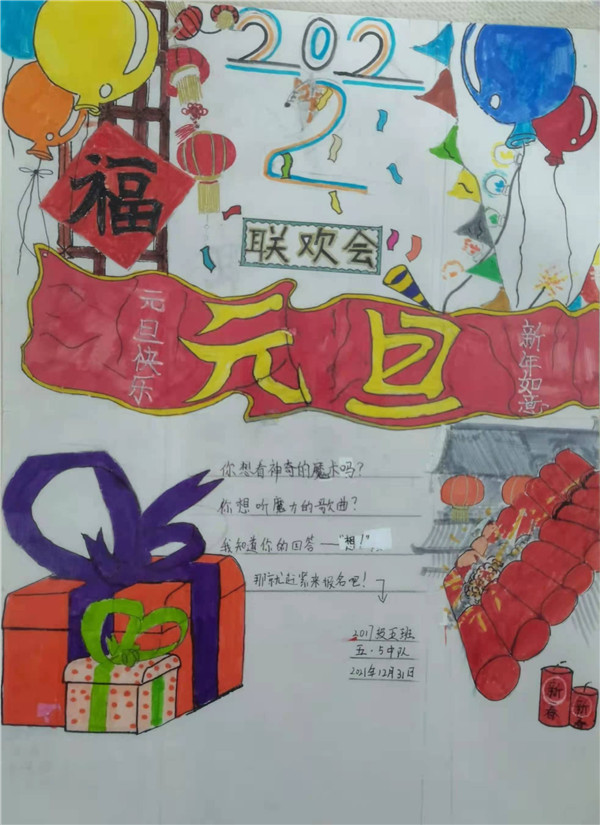 202
2
福
联欢会
元旦快乐
元旦
新年如意
你想看神奇的魔术吗？
你想听魔力的歌曲？
我知道你的回答——“想！”
那就赶紧来名吧！
2017级五班
五·5中队
2021年12月31日
新春
新春